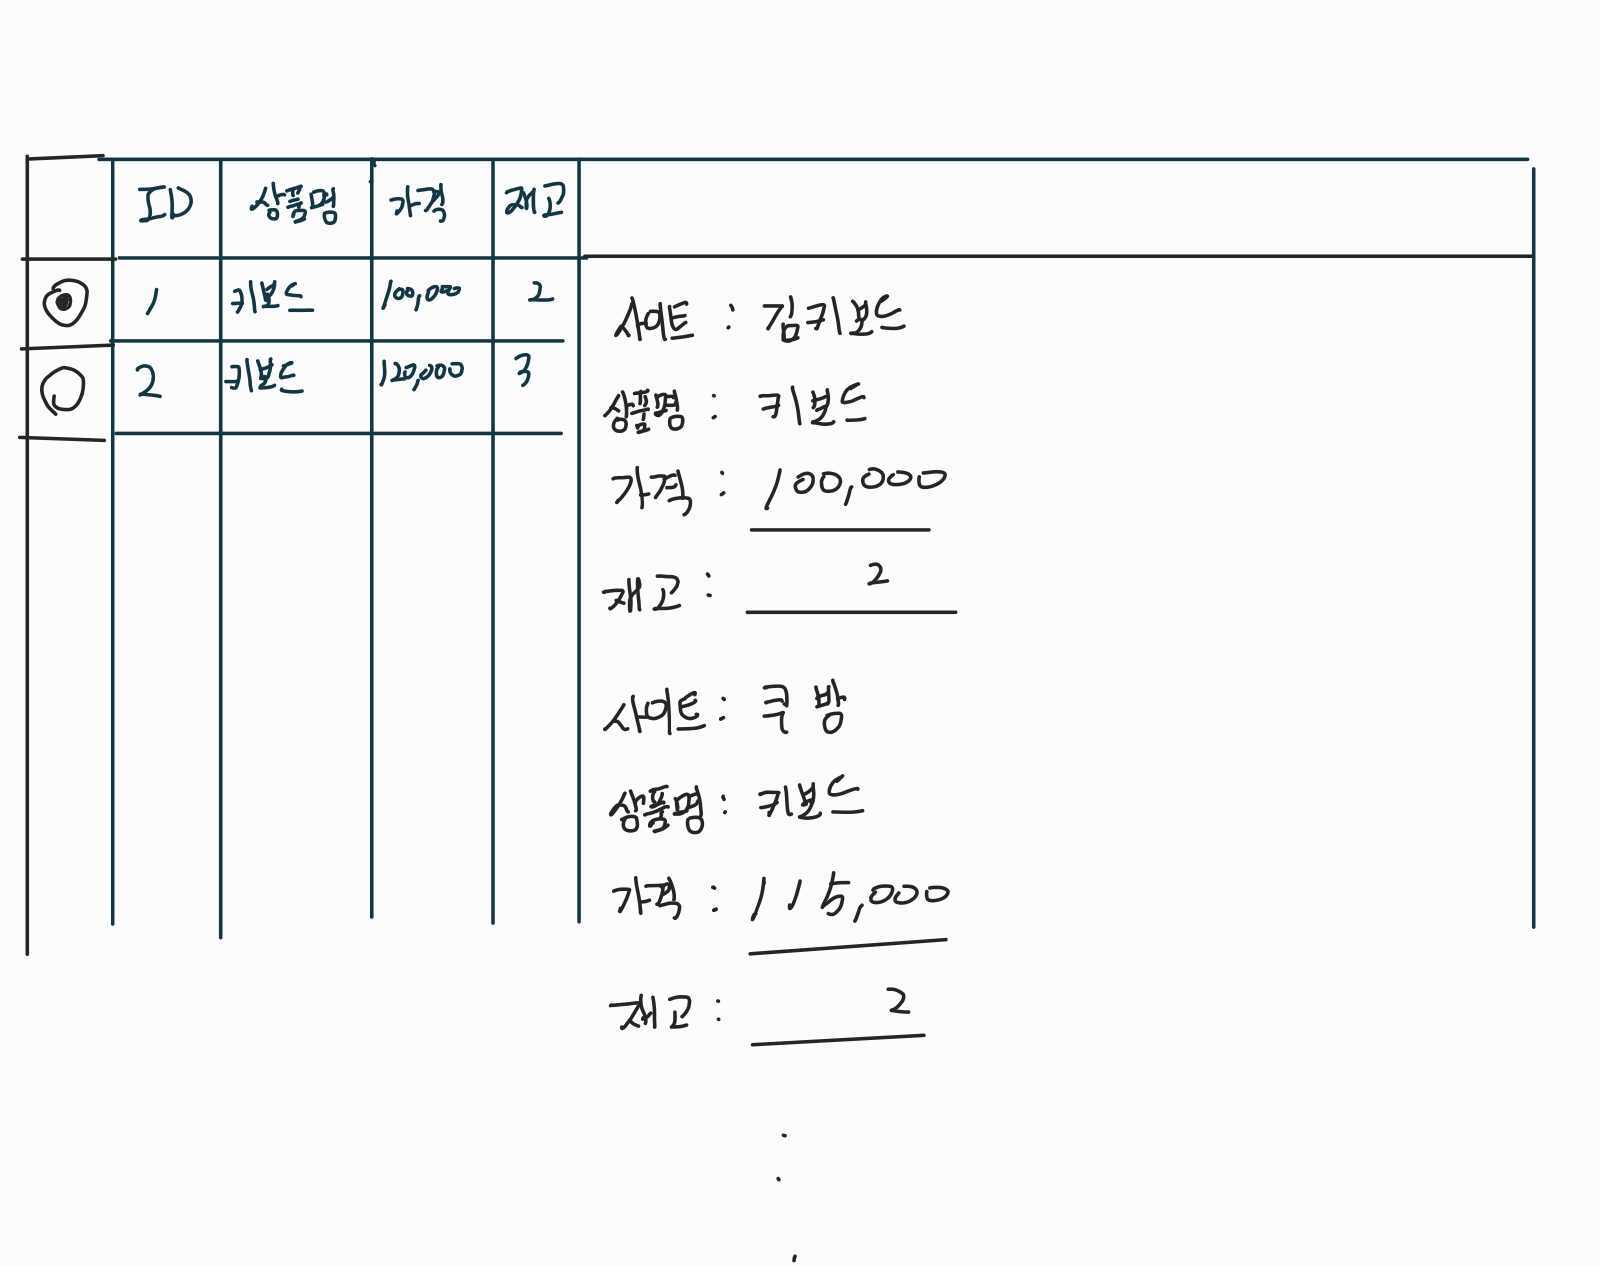 ID 상품명 가격 재고
1 키보드 100,000 2
2 키보드 120,000 3
사이트 : 김키보드
상품명 : 키보드
가격 : 100,000
재고 : 2
사이트 : 쿡방
상품명 : 키보드
가격 : 115,000
재고 : 2